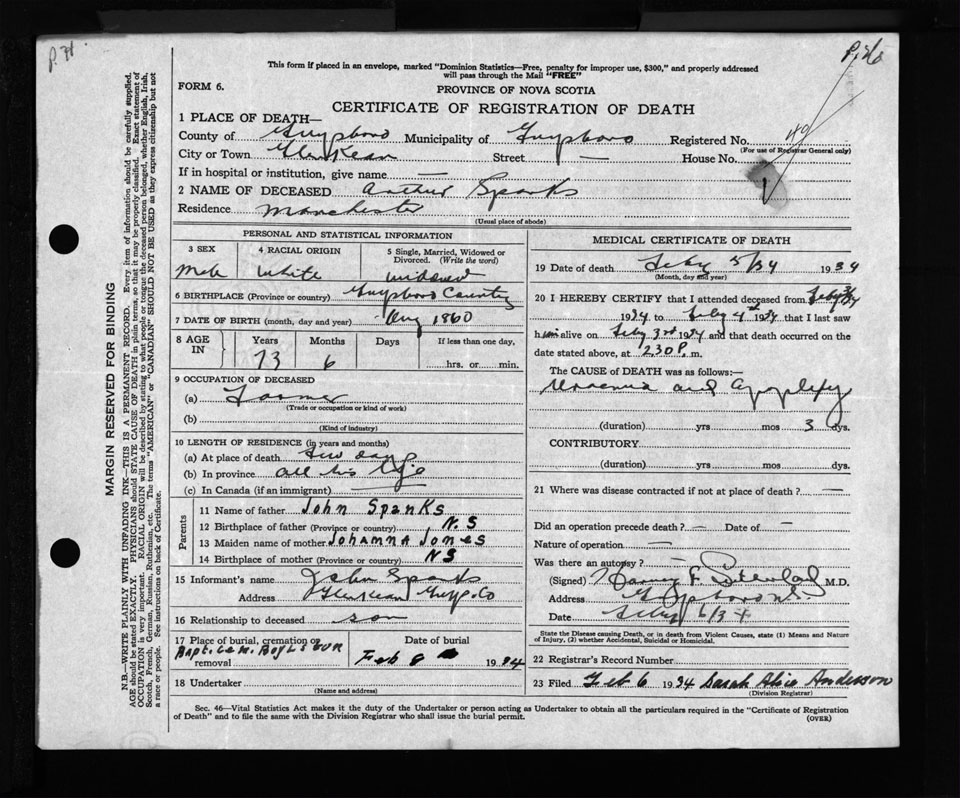 P. 71
This form if placed in an envelope, marked "Dominion Statistics—Free, penalty for improper use, $300," and properly addressed
will pass through the Mail "FREE"
FORM 6.
PROVINCE OF NOVA SCOTIA
CERTIFICATE OF REGISTRATION OF DEATH
1 PLACE OF DEATH—
County of Guysboro Municipality of Guysboro Registered No. 49
(For use of Registrar General only)
City or Town Glenkeen Street — House No.
If in hospital or institution, give name —
2 NAME OF DECEASED Arthur Spanks
Residence Manchester
(Usual place of abode)
PERSONAL AND STATISTICAL INFORMATION
3 SEX Male
4 RACIAL ORIGIN White
5 Single, Married, Widowed or Divorced. (Write the word) widowed
6 BIRTHPLACE (Province or country) Guysboro County
7 DATE OF BIRTH (month, day and year) Aug 1860
8 AGE IN Years 73 Months 6 Days If less than one day, hrs. or min.
9 OCCUPATION OF DECEASED
(a) Farmer
(Trade or occupation or kind of work)
(b)
(Kind of industry)
10 LENGTH OF RESIDENCE (in years and months)
(a) At place of death few days
(b) In province all his life
(c) In Canada (if an immigrant)
Parents
11 Name of father John Spanks
12 Birthplace of father (Province or country) N.S
13 Maiden name of mother Johanna Jones
14 Birthplace of mother (Province or country) NS
15 Informant's name John Spanks
Address Glenkeen Guys. Co
16 Relationship to deceased son
17 Place of burial, cremation or removal Baptice M. Boyls
Date of burial Feb 8 1934
18 Undertaker
(Name and address)
MEDICAL CERTIFICATE OF DEATH
19 Date of death Feby 5/34 1934
(Month, day and year)
20 I HEREBY CERTIFY that I attended deceased from Feby 3/34
1934 to Feby 4th 1934 that I last saw
him alive on Feby 3rd 1934 and that death occurred on the
date stated above, at 2.30 P. m.
The CAUSE OF DEATH was as follows:—
Uraemia and Apoplexy
(duration) yrs mos 3 dys.
CONTRIBUTORY
(duration) yrs. mos. dys.
21 Where was disease contracted if not at place of death? —
Did an operation precede death? — Date of —
Nature of operation —
Was there an autopsy? —
(Signed) Harvey F. M.D.
Address Guysboro N.S.
Date Feby 6/34
State the Disease causing Death, or in death from Violent Causes, state (1) Means and Nature
of Injury, (2) whether Accidental, Suicidal or Homicidal.
22 Registrar's Record Number
23 Filed Feb 6 1934 Sarah Alice Anderson
(Division Registrar)
Sec. 46—Vital Statistics Act makes it the duty of the Undertaker or person acting as Undertaker to obtain all the particulars required in the "Certificate of Registration
of Death" and to file the same with the Division Registrar who shall issue the burial permit.
(OVER)
MARGIN RESERVED FOR BINDING
N.B.—WRITE PLAINLY WITH UNFADING INK—THIS IS A PERMANENT RECORD. Every item of information should be carefully supplied.
AGE should be stated EXACTLY. PHYSICIANS should STATE CAUSE OF DEATH in plain terms, so that it may be properly classified. Exact statement of
OCCUPATION is very important. RACIAL ORIGIN will be described by stating to what people or tongue the deceased person belonged, whether English, Irish,
Scotch, French, German, Russian, Ruthenian, etc. The terms "AMERICAN" or "CANADIAN" SHOULD NOT BE USED as they express citizenship but not
a race or people. See instructions on back of Certificate.